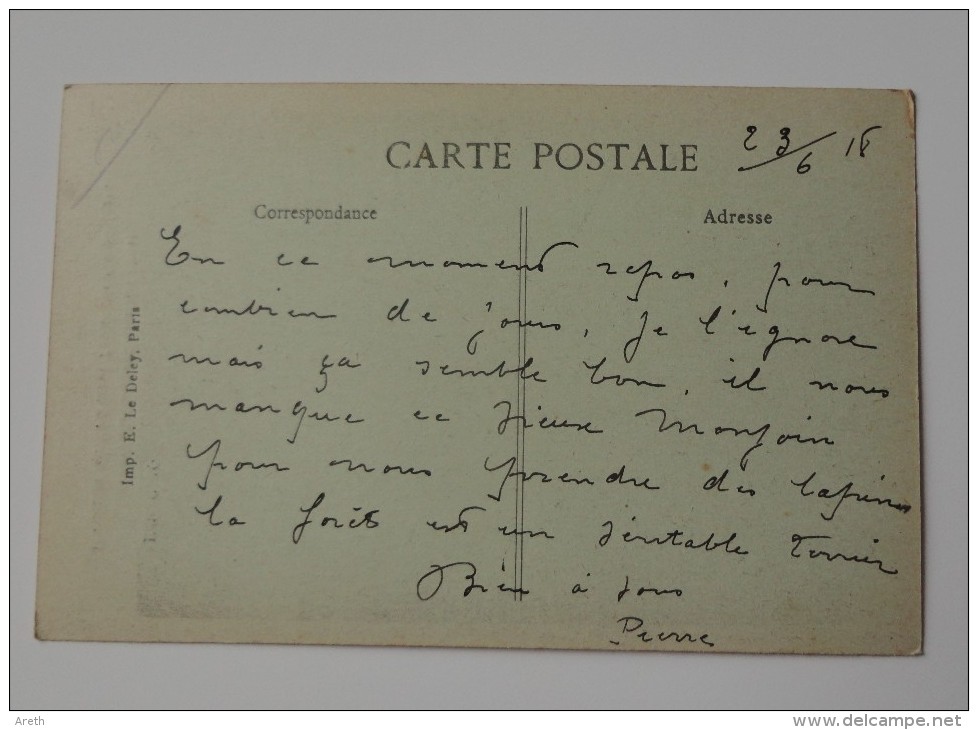 CARTE POSTALE
23/6 18
Correspondance
Adresse
En ce moment repos, pour
combien de jours, je l'ignore
mais ça semble bon, il nous
manque ce vieux Monjoin
pour nous prendre des lapins
la forêt est un véritable terrier
Bien à vous
Pierre
Imp. E. Le Deley, Paris
Areth
www.delcampe.net